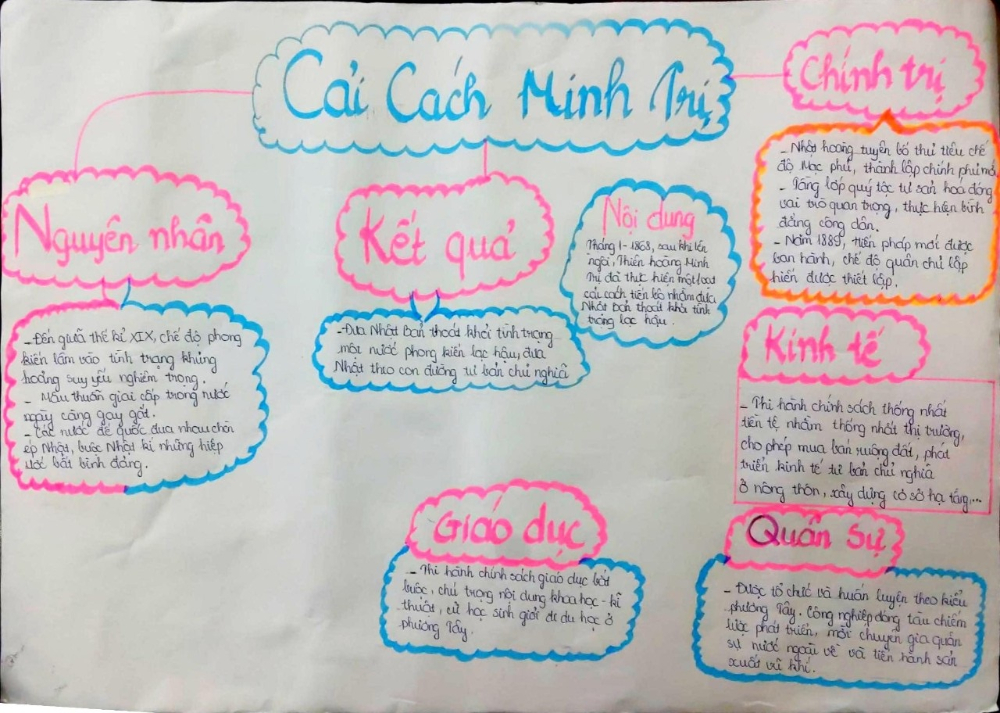 Cải Cách Minh Trị
Nguyên nhân
- Đến giữa thế kỉ XIX, chế độ phong
kiến lâm vào tình trạng khủng
hoảng suy yếu nghiêm trọng.
- Mâu thuẫn giai cấp trong nước
ngày càng gay gắt.
- Các nước đế quốc đua nhau chèn
ép Nhật, buộc Nhật kí những hiệp
ước bất bình đẳng.
Kết quả
- Đưa Nhật Bản thoát khỏi tình trạng
một nước phong kiến lạc hậu, đưa
Nhật theo con đường tư bản chủ nghĩa
Nội dung
Tháng 1-1868, sau khi lên
ngôi, Thiên hoàng Minh
Trị đã thực hiện một loạt
cải cách tiến bộ nhằm đưa
Nhật Bản thoát khỏi tình
trạng lạc hậu.
Chính trị
- Nhật hoàng tuyên bố thủ tiêu chế
độ Mạc phủ, thành lập chính phủ mới
- Tầng lớp quý tộc tư sản hoá đóng
vai trò quan trọng, thực hiện bình
đẳng công dân.
- Năm 1889, hiến pháp mới được
ban hành, chế độ quân chủ lập
hiến được thiết lập.
Kinh tế
- Thi hành chính sách thống nhất
tiền tệ, nhằm thống nhất thị trường,
cho phép mua bán ruộng đất, phát
triển kinh tế tư bản chủ nghĩa
ở nông thôn, xây dựng cơ sở hạ tầng,...
Giáo dục
- Thi hành chính sách giáo dục bắt
buộc, chú trọng nội dung khoa học - kĩ
thuật, cử học sinh giỏi đi du học ở
phương Tây.
Quân sự
- Được tổ chức và huấn luyện theo kiểu
phương Tây. Công nghiệp đóng tàu chiến
được phát triển, mời chuyên gia quân
sự nước ngoài về và tiến hành sản
xuất vũ khí.